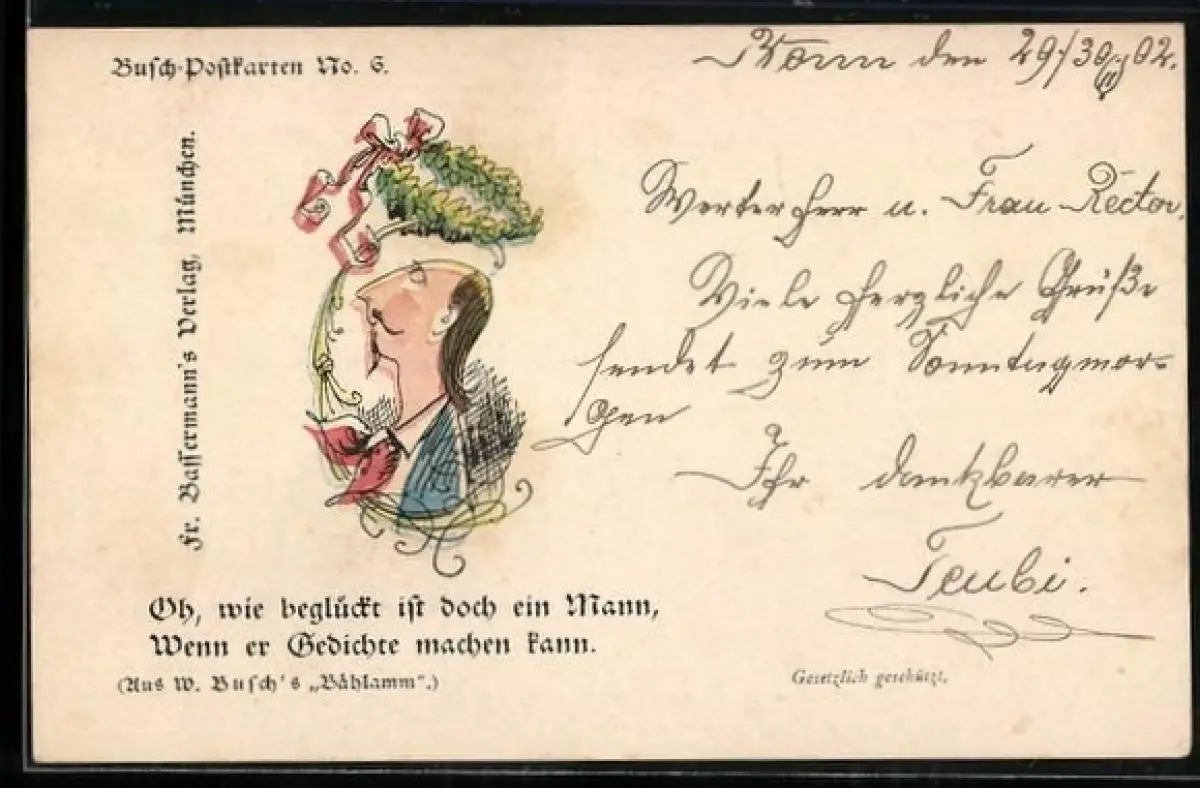 Busch-Postkarten No. 6.
Fr. Bassermann's Verlag, München.
Oh, wie beglückt ist doch ein Mann,
Wenn er Gedichte machen kann.
(Aus W. Busch's „Bählamm“.)
den 29/30 02.
Werter Herr u. Frau Rector.
Viele herzliche Grüße
sendet zum Sonntagmor-
gen
Ihr dankbarer
Gesetzlich geschützt.